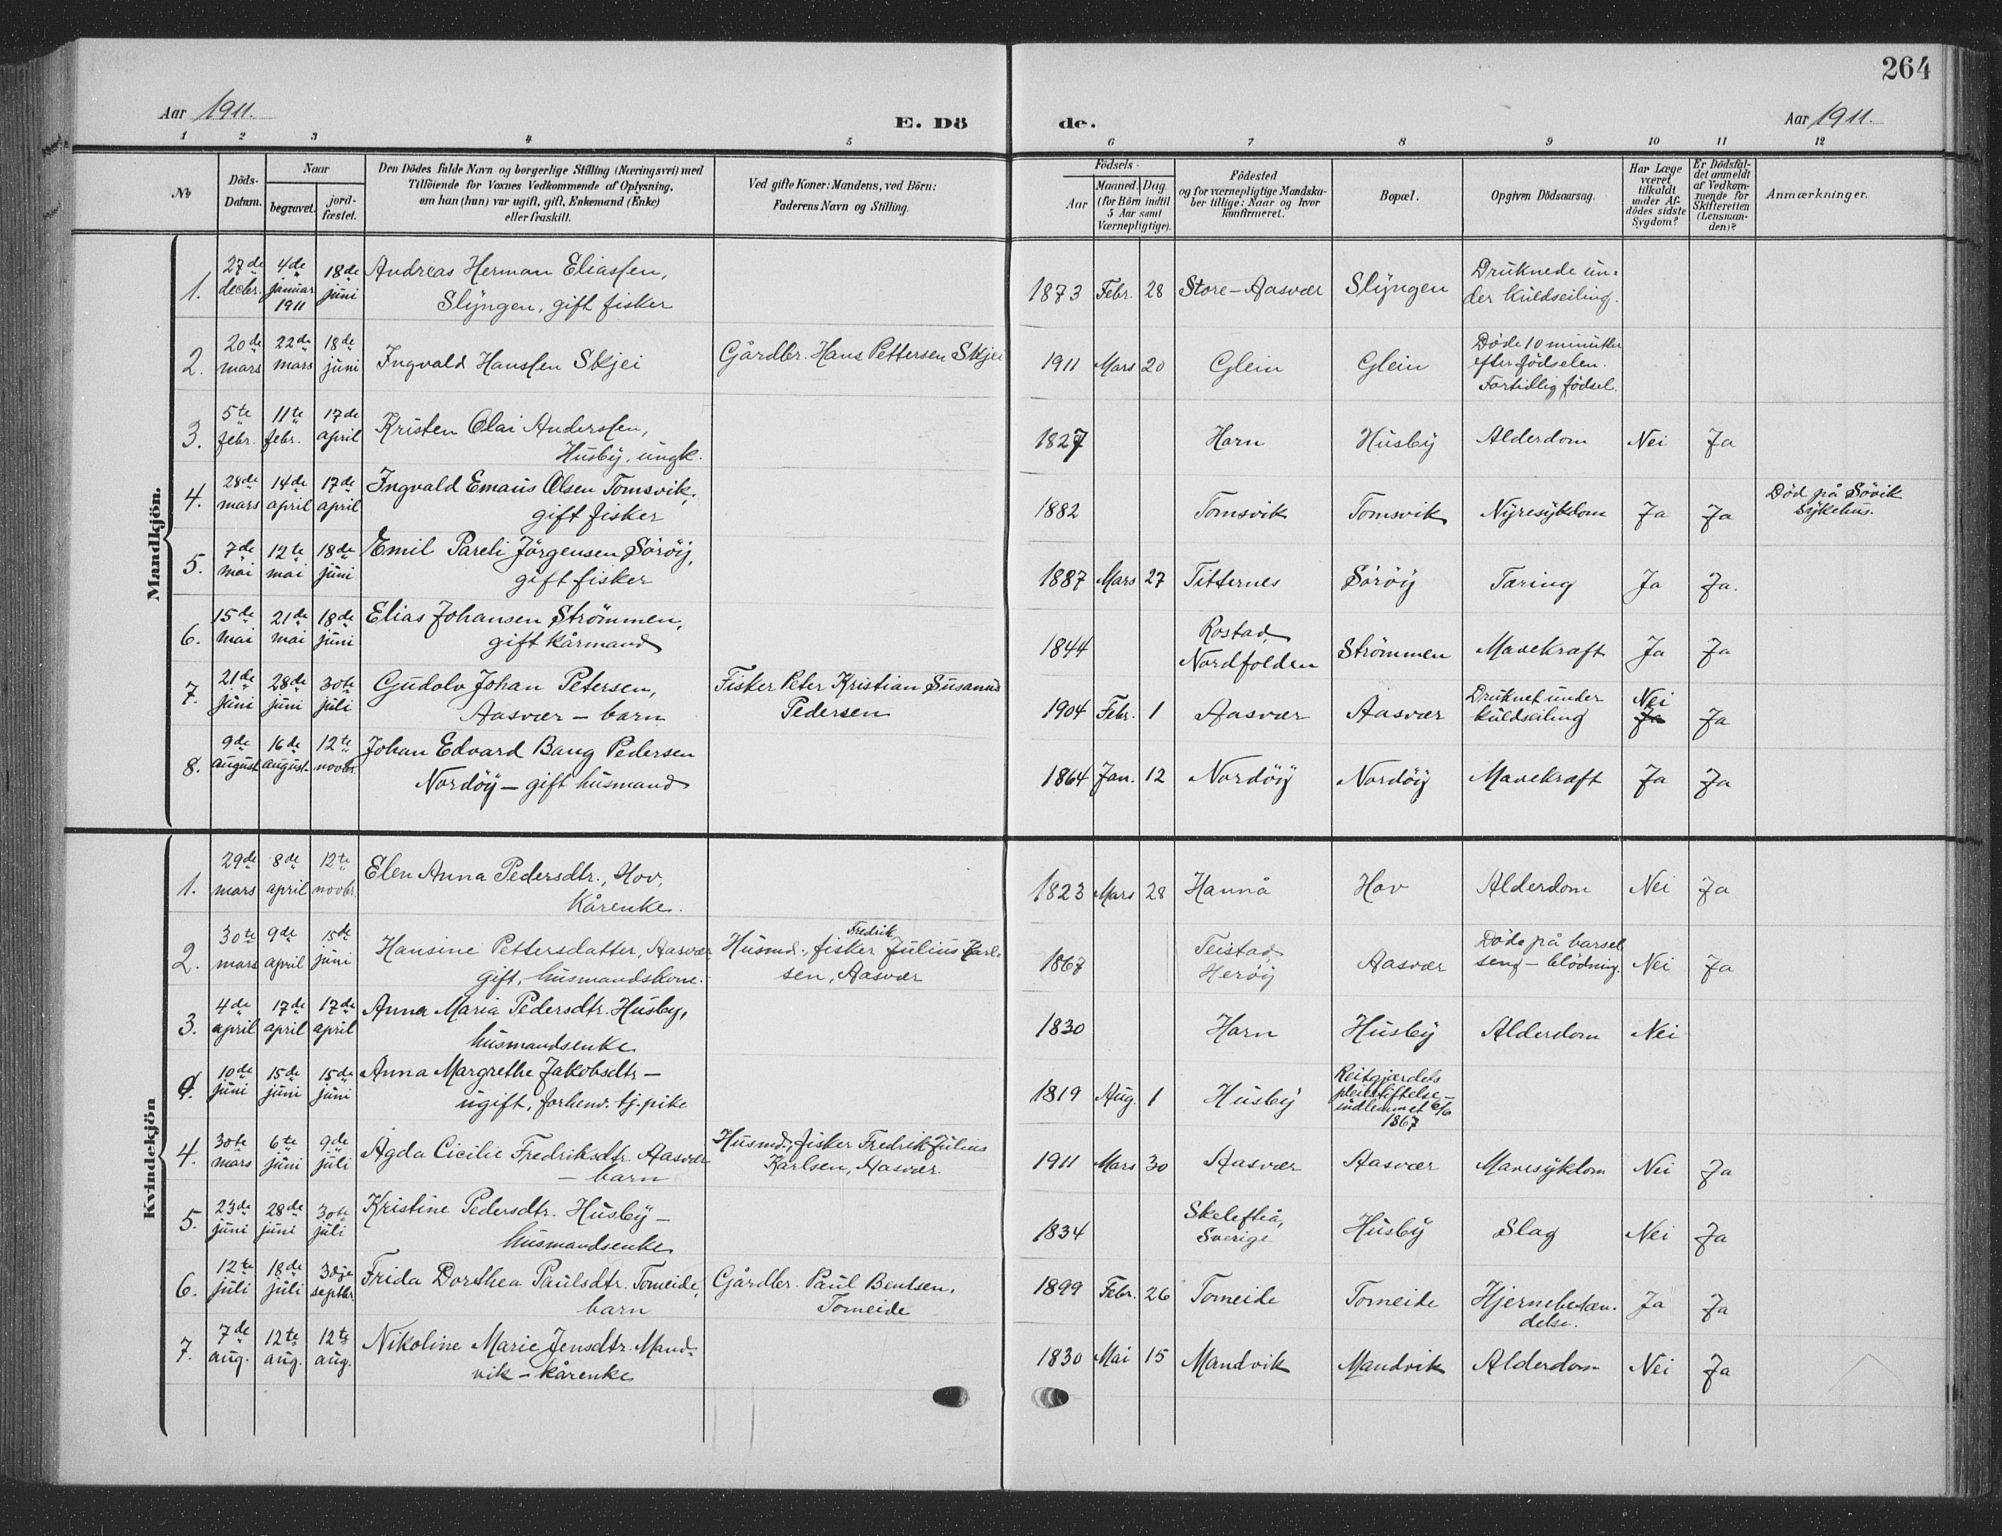 264
Aar 1911.
E. Dö
de.
Aar 1911.
1 2 3 4 5 6 7 8 9 10 11 12
No
Döds-
Datum.
Naar
begravet.
jord-
fæstet.
Den Dödes fulde Navn og borgerlige Stilling (Næringsvei) med
Tilföiende for Voxnes Vedkommende af Oplysning,
om han (hun) var ugift, gift, Enkemand (Enke)
eller fraskilt.
Ved gifte Koner: Mandens, ved Börn:
Faderens Navn og Stilling.
Födsels-
Aar
Maaned. Dag.
(for Börn indtil
5 Aar samt
Værnepligtige).
Födested
og for værnepligtige Mandska-
ber tillige: Naar og hvor
konfirmeret.
Bopæl.
Opgiven Dödsaarsag.
Har Læge
været
tilkaldt
under Af-
dödes sidste
Sygdom?
Er Dödsfal-
det anmeldt
af Vedkom-
mende for
Skifteretten
(Lensman-
den)?
Anmærkninger.
Mandkjön.
1. 27de decbr. 4de januar 1911 18de juni Andreas Herman Eliassen,
Slyngen, gift fisker 1873 Febr. 28 Store-Aasvær Slyngen Druknede un-
der kuldseiling.
2. 20de mars 22de mars 18de juni Ingvald Hanssen Skjei Gårdbr. Hans Pettersen Skjei 1911 Mars 20 Glein Glein Døde 10 minutter
efter fødselen.
Fortidlig fødsel.
3. 5te febr. 11te febr. 17de april Kristen Olai Anderssen,
Husby, ungk. 1827 Horn Husby Alderdom Nei Ja
4. 28de mars 14de april 17de april Ingvald Emaus Olsen Tomsvik,
gift fisker 1882 Tomsvik Tomsvik Nyresykdom Ja Ja Død på Søvik
sykehus.
5. 7de mai 12te mai 18de juni Emil Pareli Jørgensen Sørøy,
gift fisker 1887 Mars 27 Titternes Sørøy Tæring Ja Ja.
6. 15de mai 21de mai 18de juni Elias Johansen Strømmen,
gift kårmand 1844 Rostad,
Nordfolden Strømmen Mavekræft Ja Ja
7. 21de juni 28de juni 30te juli Gudolv Johan Petersen,
Aasvær – barn Fisker Peter Kristian Susanus
Pedersen 1904 Febr. 1 Aasvær Aasvær Druknet under
kuldseiling Nei Ja Ja
8. 9de august 16de august 12te novbr. Johan Edvard Bang Pedersen
Nordøy – gift husmand 1864 Jan. 12 Nordøy Nordøy Mavekræft Ja Ja
Kvindekjön
1. 29de mars 8de april 12te novbr. Elen Anna Pedersdtr., Hov,
kårenke. 1823 Mars 28 Hannå Hov Alderdom Nei Ja
2. 30te mars 9de april 15de juni Hansine Pettersdatter, Aasvær
gift, husmandskone. Husmd., fisker Fredrik Julius Karl-
sen, Aasvær 1867 Teistad,
Herøy Aasvær Døde på barsel
seng – blødning. Nei Ja
3. 4de april 17de april 17de april Anna Maria Pedersdtr. Husby,
husmandsenke 1830 Horn Husby Alderdom Nei
4. 10de juni 15de juni 15de juni Anna Margrethe Jakobsdtr –
ugift, forhenv. tj. pike 1819 Aug. 1 Husby Reitgjærdets
pleiestiftelse –
indlemmet 6/6
1867
4. 30te mars 6te juni 9de juli Agda Cicilie Fredriksdtr. Aasvær
– barn Husmd., fisker Fredrik Julius
Karlsen, Aasvær 1911 Mars 30 Aasvær Aasvær Mavesykdom Nei Ja
5. 23de juni 28de juni 30te juli Kristine Pedersdtr. Husby –
husmandsenke 1834 Skelefteå,
Sverige Husby Slag Nei Ja
6. 12te juli 18de juli septbr. Frida Dorthea Paulsdtr. Tomeide,
barn Gårdbr. Paul Bentsen,
Tomeide 1899 Febr. 26 Tomeide Tomeide Hjernebetæn-
delse. Ja Ja
7. 7de aug. 12te aug. 12te aug. Nikoline Marie Jensdtr. Mand-
vik – kårenke 1830 Mai 15 Mandvik Mandvik Alderdom Nei Ja